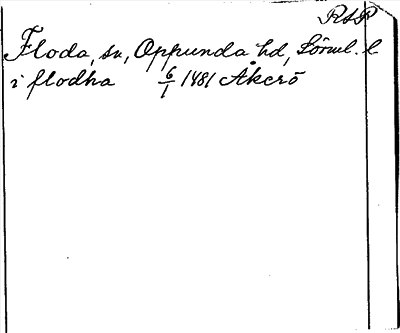 RAP
Floda, sn, Oppunda hd, Sörml. l
i flodha 6/1 1481 Åkerö